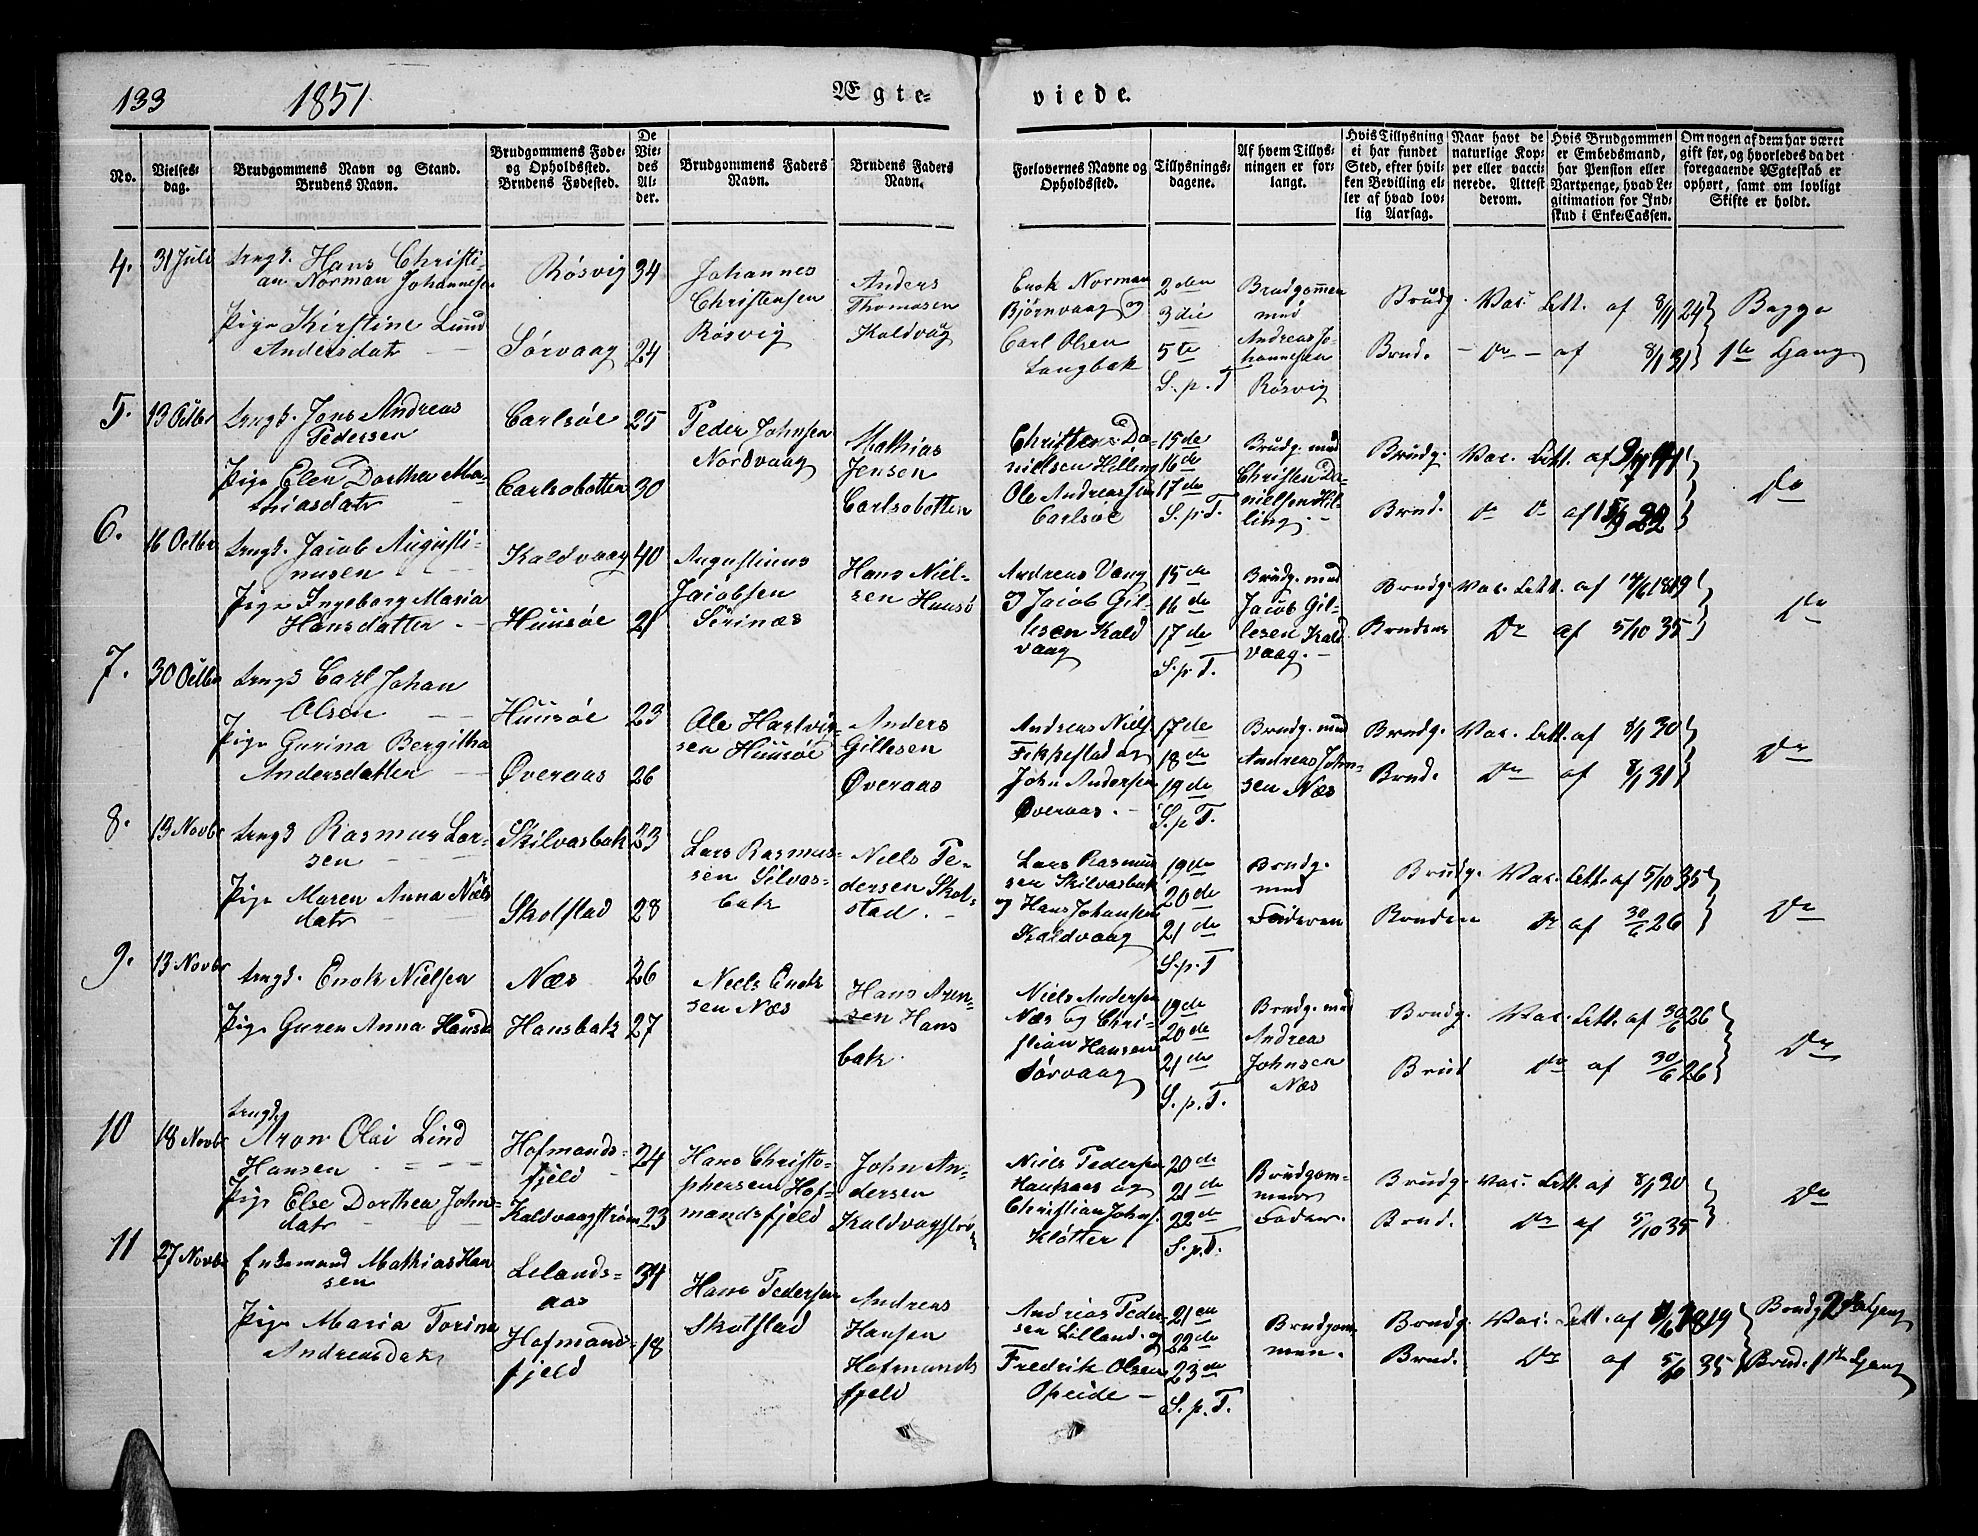 133 1851. Ægte- viede.
No.
Vielses-
dag.
Brudgommens Navn og Stand.
Brudens Navn.
Brudgommens Føde-
og Opholdssted.
Brudens Fødested.
De
Vie-
des
Al-
der.
Brudgommens Faders
Navn.
Brudens Faders
Navn.
Forlovernes Navne og
Opholdssted.
Tillysnings-
dagene.
Af hvem Tillys-
ningen er for-
langt.
Hvis Tillysning
ei har fundet
Sted, efter hvil-
ken Bevilling el-
ler af hvad lov-
lig Aarsag.
Naar havt de
naturlige Kop-
per eller vacci-
nerede. Attest
derom.
Hvis Brudgommen
er Embedsmand,
har Pension eller
Vartpenge, hvad Le-
gitimation for Ind-
skud i Enke-Cassen.
Om nogen af dem har været
gift før, og hvorledes da det
foregaaende Ægteskab er
ophørt, samt om lovligt
Skifte er holdt.
4. 31 Juli
Ungk. Hans Christi-
an Norman Johannesen
Pige Kirstine Lund
Andersdatr
Røsvig 34
Sørvaag 24
Johannes
Christensen
Røsvig
Anders
Thomasen
Kaldvag
Enok Norman
Bjørnvaag og
Carl Olsen
Langbak
2den
3die
5te
S. p. T
Brudgommen
med
Andreas Jo-
hannesen
Røsvig
Brudg. Vac. Att. af 8/1 24
Brud. - Do - af 8/1 31
Begge
1ste Gang
5. 13 Octbr
Ungk. Jens Andreas
Pedersen
Pige Elen Dorthea Ma-
thiasdatr
Carlsøe 25
Carlsobotten 30
Peder Johnsen
Nordvaag
Mathias
Jensen
Carlsobotten
Christen Da-
nielsen Helling
Ole Andreassen
Carlsøe
15de
16de
17de
S. p. T.
Brudg. med
Christen Da-
nielsen Hel-
ling.
Brudg. Vac. Att. af
Brud. Do Do af
Do
6. 16 Octbr
Ungk. Jacob Augusti-
nusen
Pige Ingeborg Maria
Hansdatter
Kaldvaag 40
Huusøe 21
Augustinus
Jacobsen
Sørinæs
Hans Niel-
sen Huusø
Andreas Vang
og Jacob Gil-
lesen Kald
vaag
15de
16de
17de
S. p. T.
Brudg. med
Jacob Gil-
lesen Kald
vaag.
Brudg. Vac. Att. af 1819
Brudens Do af 5/10 35
Do
7. 30 Octbr
Ungk Carl Johan
Olsen
Pige Gurina Bergitha
Andersdatter
Huusøe 23
Øveraas 26
Ole Hartvig-
sen Huusøe
Anders
Gillesen
Øveraas
Andreas Niels
Fikkestad og
John Andersen
Øveraas.
17de
18de
19de
S. p T.
Brudg. med
Andreas John-
sen Næs
Brudg. Vac. Att. af 8/1 30
Brud. Do af 8/1 31
Do
8. 13 Novbr
Ungk Rasmus Lar-
sen
Pige Maren Anna Niels
datr
Skilvasbak 23
Skotstad 28
Lars Rasmus-
sen Silvas-
bak
Niels Pe-
dersen Skot-
stad.
Lars Rasmus
sen Skilvasbak
og Hans Johansen
Kaldvaag
19de
20de
21de
S. p. T
Brudg.
med
Faderen
Brudg. Vac. Att. af 5/10 35
Bruden Do af 30/6 26
Do
9. 13 Novbr
Ungk. Enok Nielsen
Pige Guren Anna Hansd
Næs 26
Hansbak 27
Niels Enok
sen Næs
Hans Aren-
sen Hans
bak.
Niels Andersen
Næs og Chri-
stian Hansen
Sørvaag
19de
20de
21de
S. p. T.
Brudg. med
Andreas
Johnsen
Næs
Brudg. Vac. Att. af 30/6 26
Brud Do af 30/6 26
Do
10 18 Novbr
Ungk.
Aron Olai Lind
Hansen
Pige Else Dorthea John-
datr
Hofmands-
fjeld 24
Kaldvaagstrøm 23
Hans Christo-
phersen Hof-
mandsfjeld
John An-
dersen
Kaldvagstrøm
Niels Pedersen
Haukaas og
Christian Johns.
Kløtter
20de
21de
22de
S. p. T.
Brudgom-
mens
Fader.
Brudg. Vac. Att. af 8/1 30
Brud. Do af 5/10 35
Do
11 27 Novbr
Enkemand Mathias Han
sen
Pige Maria Torina
Andreasdatr
Lelands-
aas 34
Hofmands-
fjeld 18
Hans Pedersen
Skotstad
Andreas
Hansen
Hofmands
fjeld
Andreas Peder
sen Lilland og
Fredrik Olsen
Opeide -
21de
22de
23de
S. p. T.
Brudgom-
men.
Brudg. Vac. Att. af 1819
Brud. Do af 5/10 35
Brudg. 2den Gang
Brud. 1ste Gang